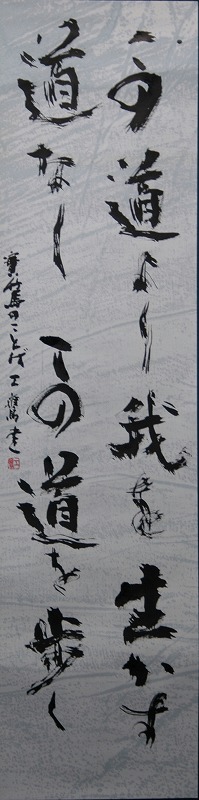 この道より我を生かす
道なしこの道を歩く
實篤のことば